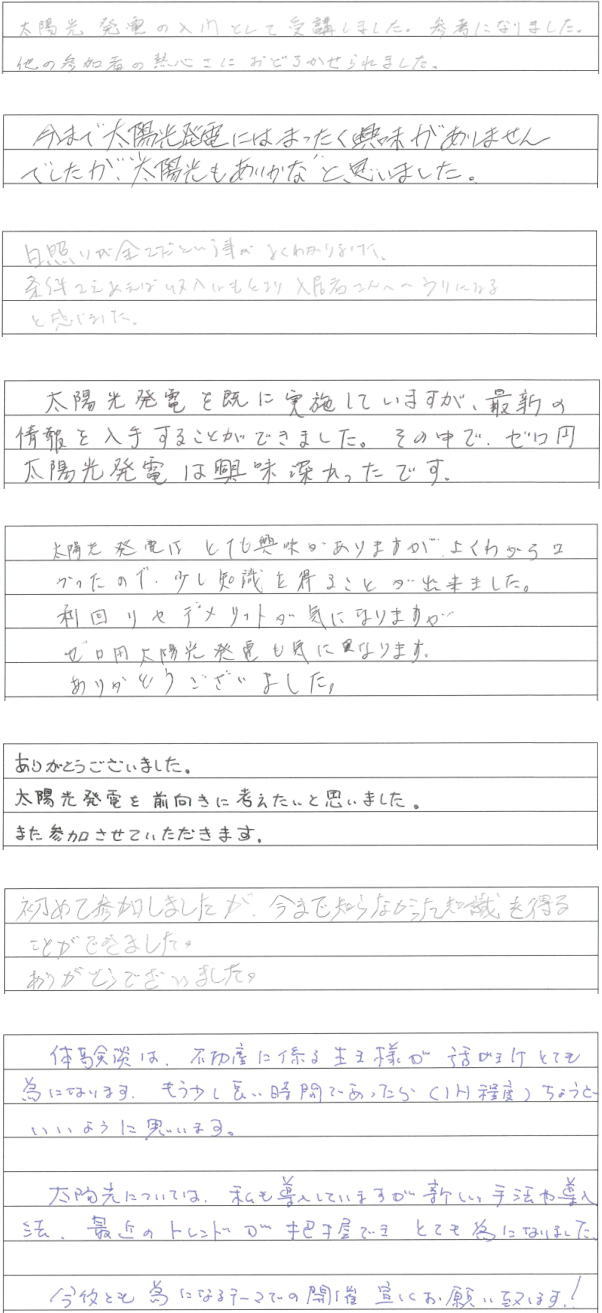 太陽光発電の入門として受講しました。参考になりました。
他の参加者の熱心さにおどろかせられました。
今まで太陽光発電にはまったく興味がありません
でしたが、"太陽光もありかな"と思いました。
日照りが全てだという事がよくわかりました。
条件さえあえば収入はもとより入居者さんへのウリになる
と感じました。
太陽光発電を既に実施していますが、最新の
情報を入手することができました。その中で、ゼロ円
太陽光発電は興味深かったです。
太陽光発電はとても興味がありますが、よくわからな
かったので、少し知識を得ることが出来ました。
利回りやデメリットが気になりますが
ゼロ円太陽光発電も気になります。
ありがとうございました。
ありがとうございました。
太陽光発電を前向きに考えたいと思いました。
また参加させていただきます。
初めて参加しましたが、今まで知らなかった知識を得る
ことができました。
ありがとうございました。
体験談は、不動産に係る生主様が話がきけとても
為になります。もう少し長い時間であったら(1H程度)ちょうど
いいように思います。
太陽光については、私も導入していますが新しい手法や導入
法、最近のトレンドが把握できとても為になりました。
今後とも為になるテーマでの開催宜しくお願い致します!